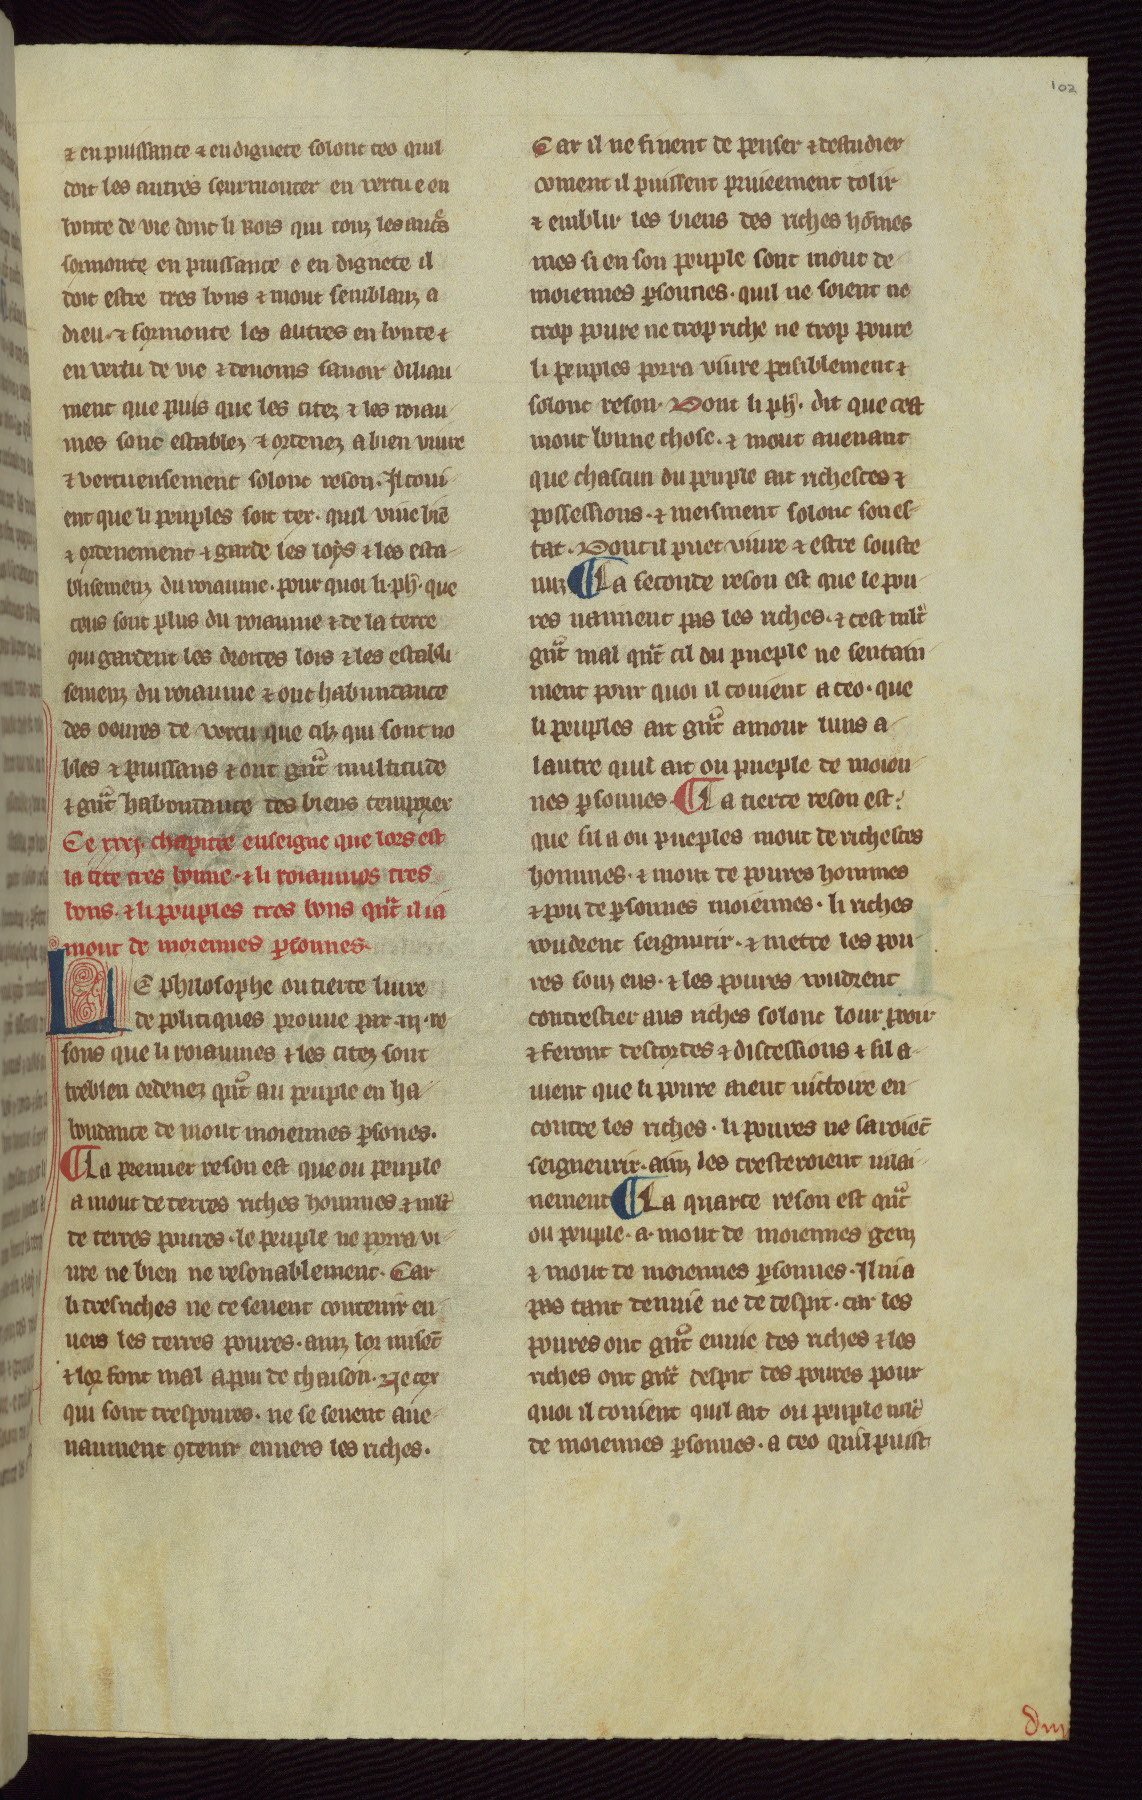 102
⁊ en puissance ⁊ en dignete solonc ceo quil
doit les autres seurmonter en vertu e en
bonte de vie dont li Rois qui touz les autres
sormonte en puissance e en dignete il
doit estre tres bons ⁊ mout semblauz a
dieu ⁊ sormonte les autres en bonte ⁊
en vertu de vie ⁊ devoms savoir diliau
ment que puis que les citez ⁊ les roiau
mes sont establez ⁊ ordenez a bien vivre
⁊ vertuensement solonc reson. Il covi
ent que li peuples soit ter. quil vive biē
⁊ ordenement ⁊ garde les loys ⁊ les esta-
blisemenz du roiaume. pour quoi li ph̄. que
ceus sont plus du roiaume ⁊ de la terre
qui gardent les droites lois ⁊ les establi
semenz du roiaume ⁊ ont habundance
des oevres de vertu que cilz qui sont no
bles ⁊ puissans ⁊ ont gnt̄ multitude
⁊ gnt̄ habondance des biens temporer
Ce xxxj. chapitre enseigne que lors est
la cite tres bonne. ⁊ li roiaumes tres
bons. ⁊ li peuples tres bons qn̄t il ia
mout de moiennes psonnes.
LE philosophe ou tierce livre
de politiques prouve par .iiij. re
sons que li roiaumes ⁊ les citez sont
trebien ordenez qn̄t au peuple en ha-
bondance de mout moiennes psones.
¶ La premier reson est que ou peuple
a mout de terres riches hommes ⁊ mlt̄
de terres poures. le peuple ne porra vi-
vre ne bien ne resonablement. Car
li tresriches ne ce sevent contenir en
vers les terres poures. ainz lor nuisēt
⁊ lor font mal a pou de chaison. Ne cer
qui sont trespoures. ne se sevent ave-
naument ꝯtenir envers les riches.
Car il ne fivent de penser ⁊ destudier
coment il puissent priveement tolir
⁊ emblir les biens des riches hōmes
mes si en son peuple sont mout de
moiennes psonnes. quil ne soient ne
trop poure ne trop riche ne trop poure
li peuples porra vivre pesiblement ⁊
solonc reson. Dont li ph̄. dit que cest
mout bonne chose. ⁊ mout avenant
que chascun du peuple ait richesces ⁊
possessions. ⁊ meisment solonc son es-
tat. Dont il puet vivre ⁊ estre souste
nuz ¶ La seconde reson est que le pou-
res nanment pas les riches. ⁊ cest mlt̄
gnt̄ mal qn̄t cil du pueple ne sentain-
ment pour quoi il covient a ceo. que
li peuples ait gnt̄ amour luns a-
lautre quil ait ou pueple de moien-
nes psonnes. ¶ La tierce reson est:
que sil a ou pueples mout de richesces
hommes. ⁊ mout de poures hommes
⁊ pou de psonnes moiennes. li riches
voudrent seignurir. ⁊ metre les pou-
res souz eus. ⁊ les poures voudrent
contrestier aus riches solonc lour pooir
⁊ feront descordes ⁊ discessions ⁊ sil a-
vient que li poure aient victoire en-
contre les riches. li poures ne saroiēt
seigneurir. ainz les tresteroient mlai-
nement ¶ La quarte reson est qn̄t
ou peuple. a. mout de moiennes genz
⁊ mout de moiennes psonnes. Il nia
pas tant denvie ne de despit. car les
poures ont gnt̄ envie des riches ⁊ les
riches ont gnt̄ despit des poures pour
quoi il consent quil ait ou peuple mlt̄
de moiennes psonnes. a ceo quil puist